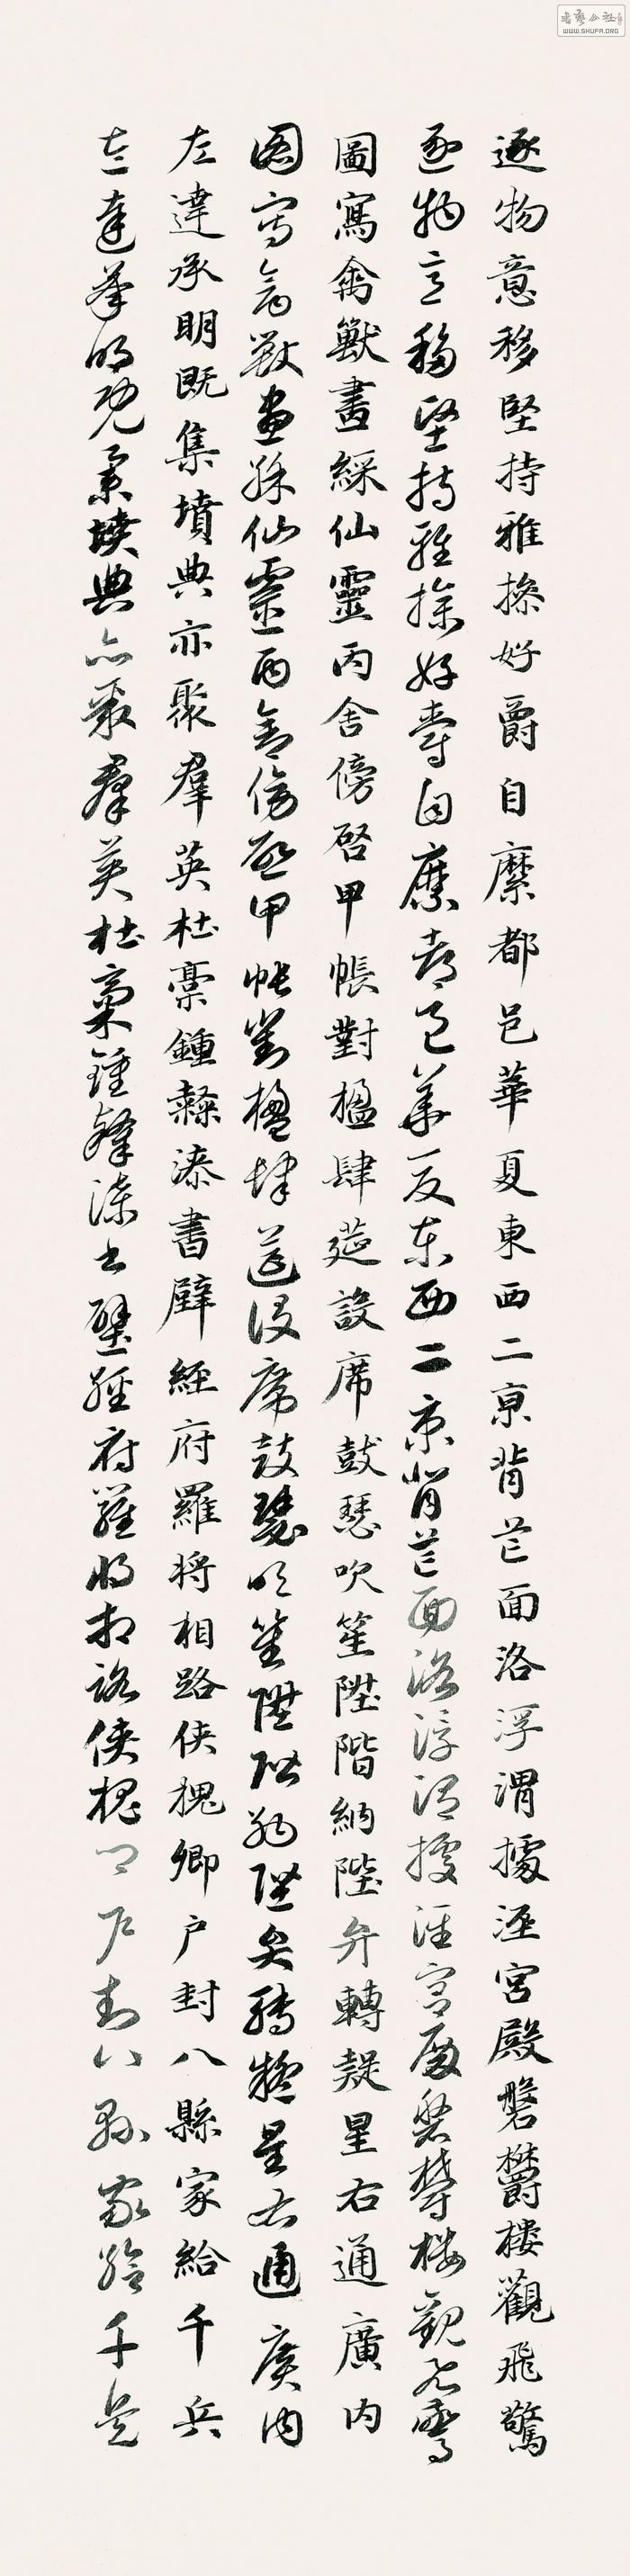 逐物意移堅持雅操好爵自縻都邑華夏東西二京背芒面洛浮渭據涇宮殿磐欝樓觀飛驚
逐物意移堅持雅操好爵自縻都邑華夏東西二京背芒面洛浮渭據涇宮殿磐欝樓觀飛驚
圖寫禽獸畫綵仙靈丙舍傍啓甲帳對楹肆莚設席鼓瑟吹笙陞階納陛弁轉疑星右通廣内
圖寫禽獸畫綵仙靈丙舍傍啓甲帳對楹肆莚設席鼓瑟吹笙陞階納陛弁轉疑星右通廣内
左達承明既集墳典亦聚羣英杜稾鍾隸漆書壁經府羅將相路俠槐卿户封八縣家給千兵
左達承明既集墳典亦聚羣英杜稾鍾隸漆書壁經府羅將相路俠槐卿户封八縣家給千兵
书艺公社
WWW.SHUFA.ORG